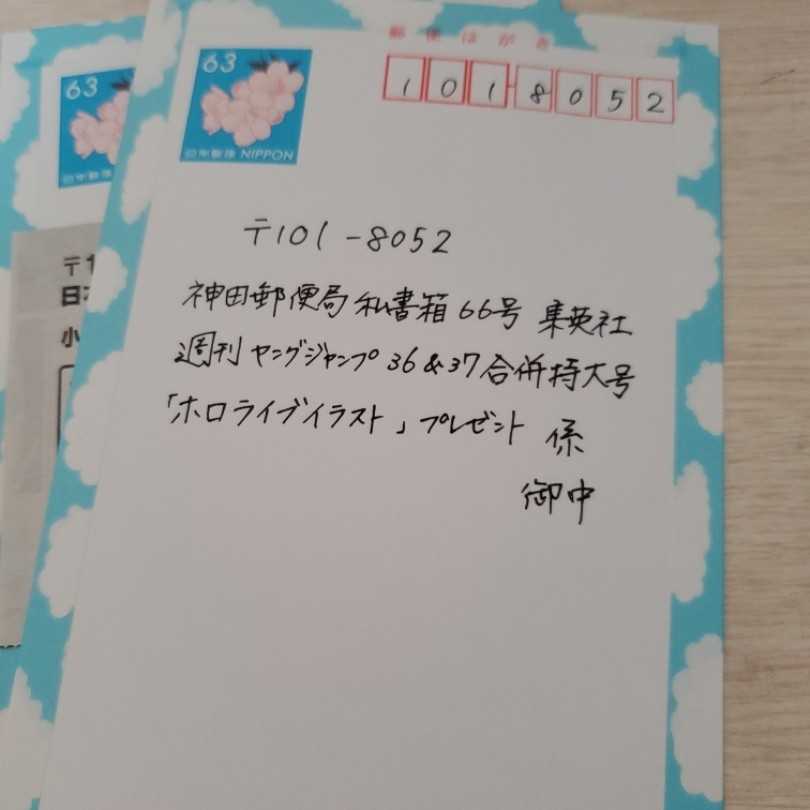 63
日本郵便 NIPPON
郵便はがき
1018052
〒101-8052
神田郵便局 私書箱66号 集英社
週刊ヤングジャンプ 36&37合併特大号
「ホロライブイラスト」プレゼント 係
御中
63
〒1
小